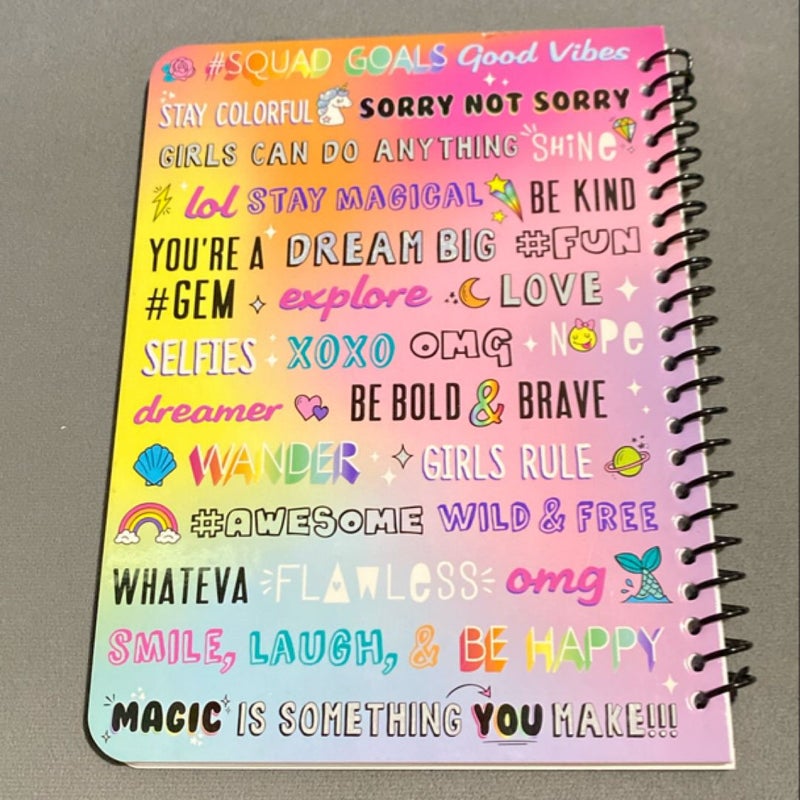 #SQUAD GOALS Good Vibes
STAY COLORFUL SORRY NOT SORRY
GIRLS CAN DO ANYTHING SHiNe
lol STAY MAGICAL BE KIND
YOU'RE A DREAM BIG #FUN
#GEM explore LOVE
SELFIES XOXO OMG NOPe
dreamer BE BOLD & BRAVE
WANDER GIRLS RULE
#AWESOME WILD & FREE
WHATEVA FLAWLeSS omg
SMILE, LAUGH, & BE HAPPY
MAGIC IS SOMETHING YOU MAKE!!!